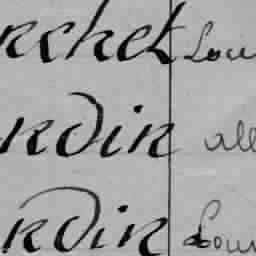 rchet Lou
rdin all
rdin Lour